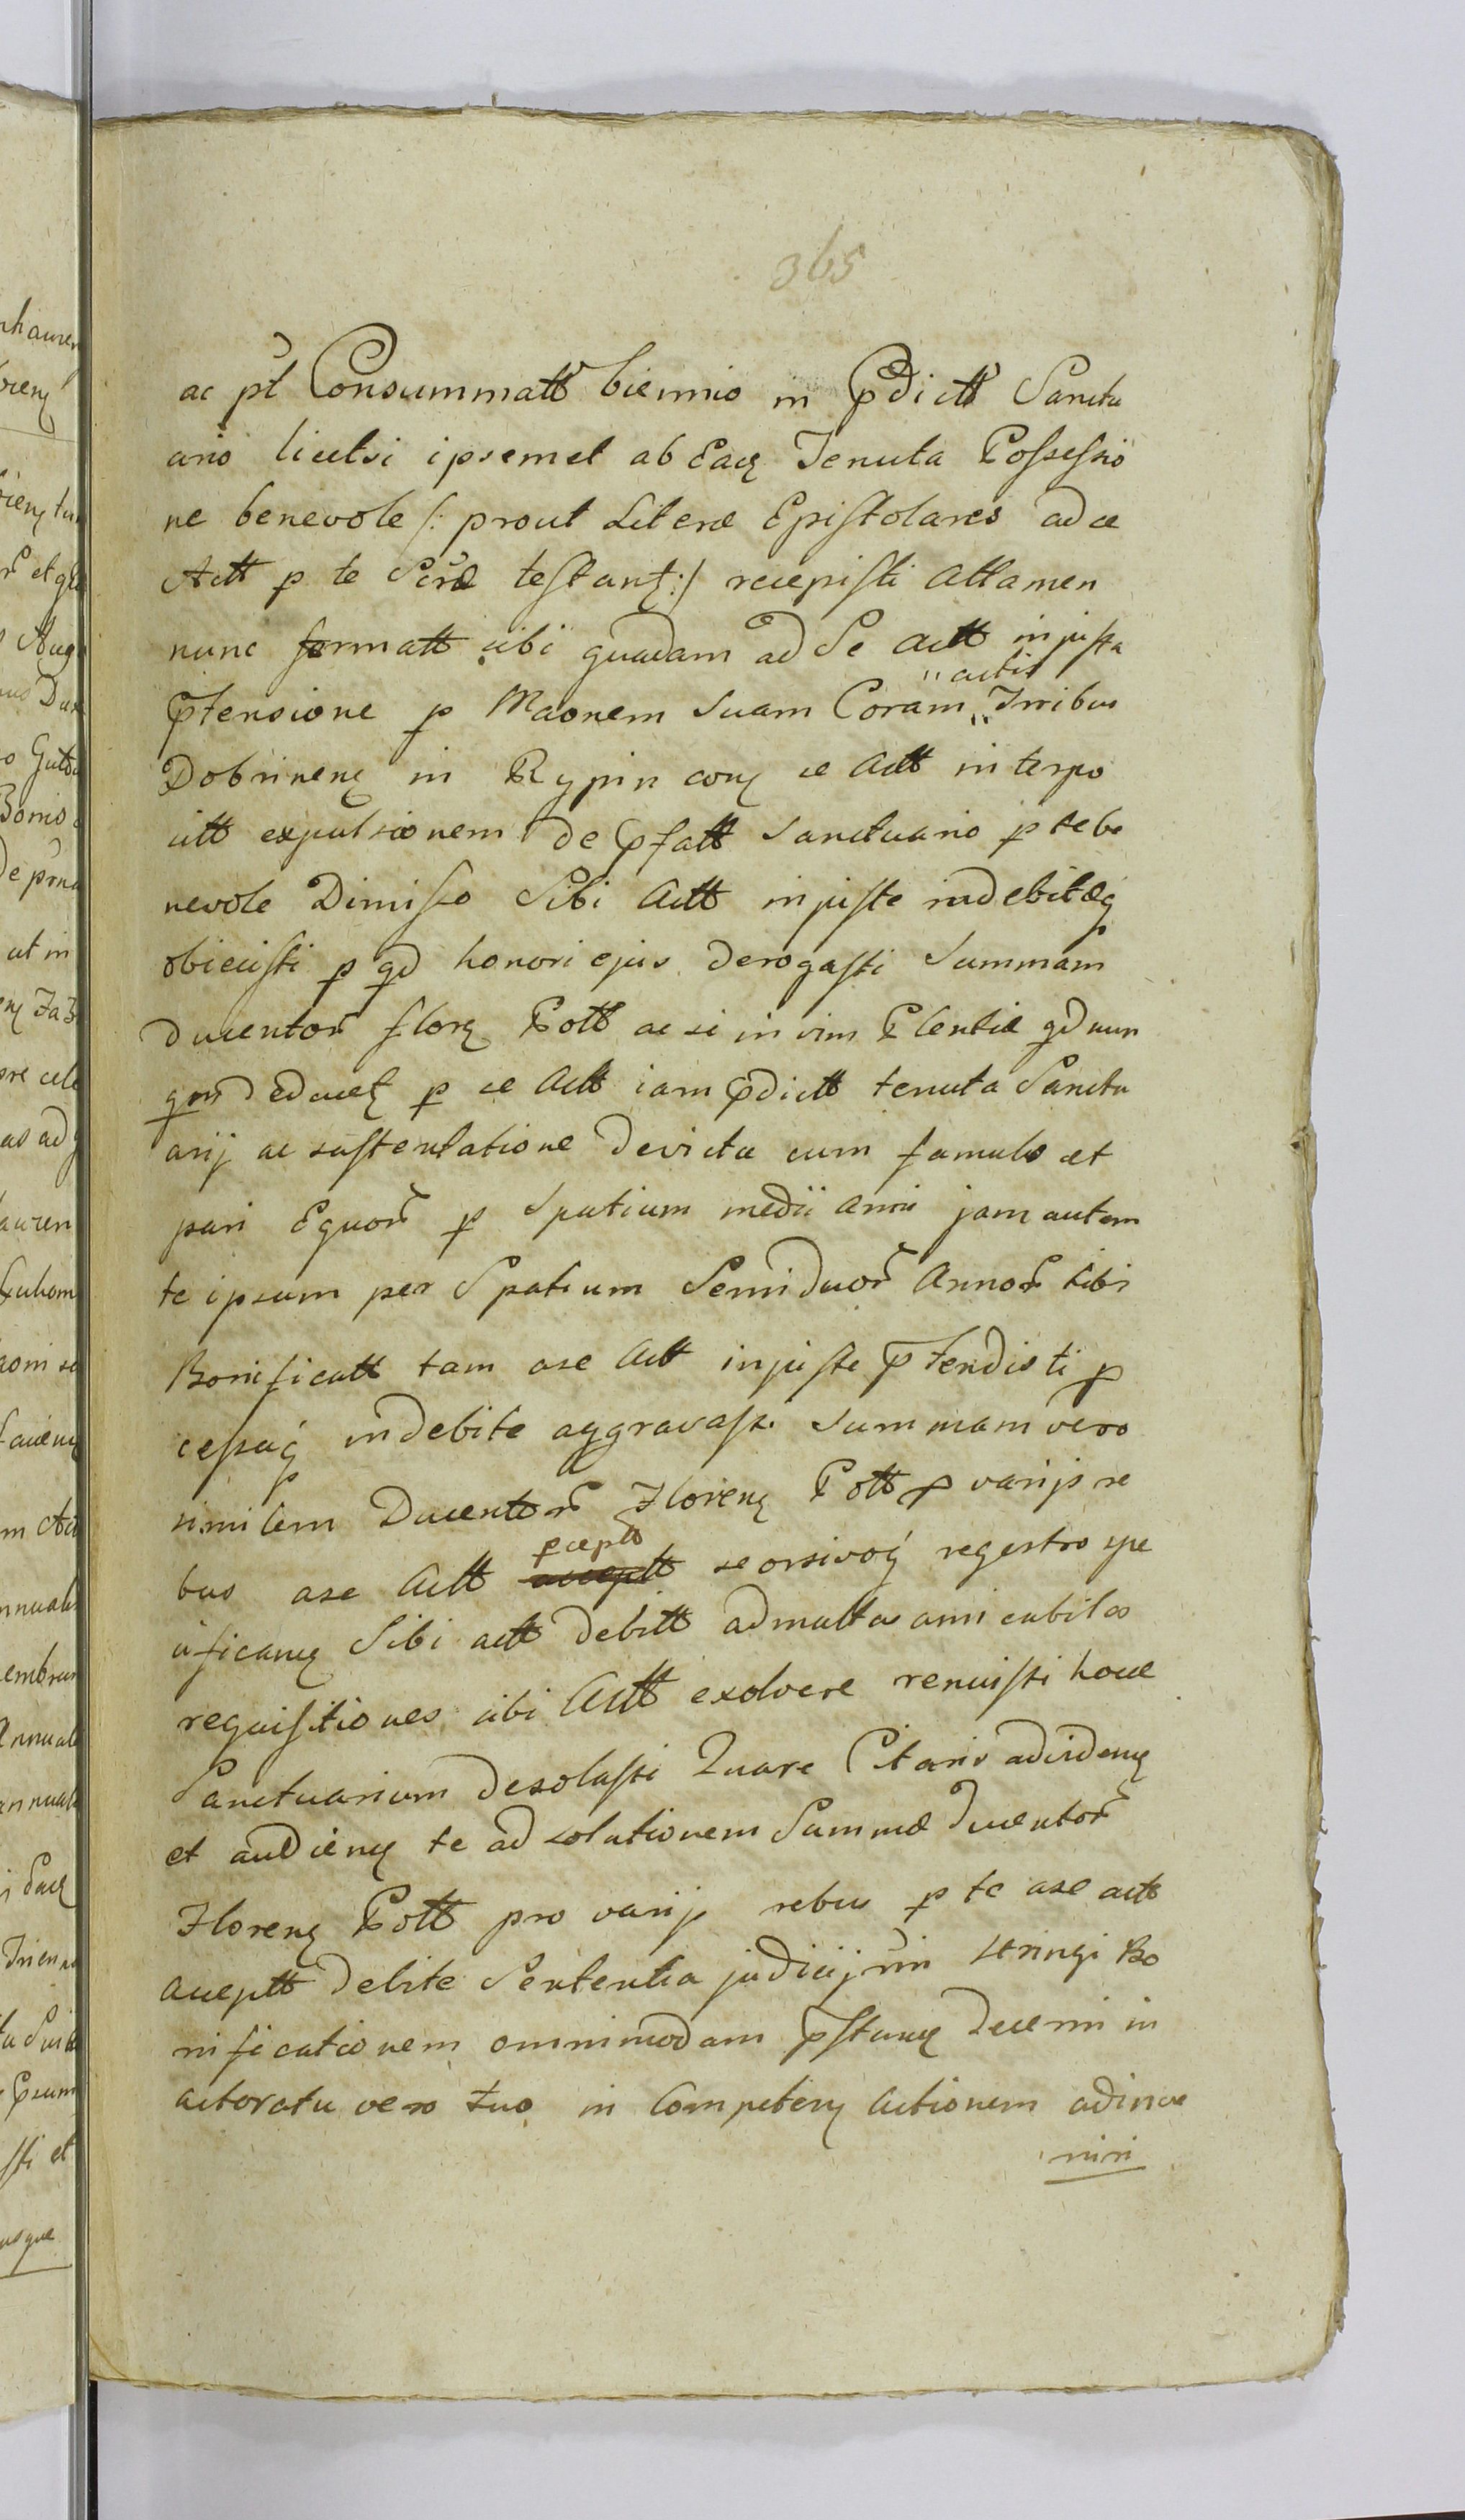 365
ac pt Consummatt biennio in Pdictt Sanctu
ario licetsi ipsemet ab Eacz Tenuta Possessio
ne benevole /: prout Literæ Epistolares ad ce
Actt p te Scræ testantz :/ recepisti Attamen
nunc formatt sibi quadam ad Se actt injusta
actis
Ptensione p Maonem Suam Coram Trribus
Dobrinenz in Rypin conz ce Actt interpo
sitt expulsionem de Pfatt Sanctuario p te be
nevole Dimisso Sibi Actt injuste indebitæq
obiecisti p qd honori ejus derogasti Summam
Ducentor florz Poll ac si in vim
p ce Actt iam Pdictt tenuta Sanctu
arij ac sustentatione devicta cum famulo et
pari Equor p Spatium medii anni jam autem
te ipsum per Spatium Semiduor Annor tibi
Bonificatt tam ase Actt injuste Ptendisti p
cessuq indebite aggravasti Summam vero
similem Ducentor Florenz Poll p varijs re
pceptt
bus ase Actt acceptt seorsivoq regestro spe
cificanz Sibi actt debitt ad multas amicabiles
requisitiones sibi Actt exolvere renuisti hocce
Sanctuarium desolasti Quare Citaris ad videnz
et audienz te ad solutionem Summæ Ducentor
Florenz Poll pro varijs rebus p te ase actt
acceptt debite Sententia judicij nri stringi Bo
nificationem omnimodam Pstanz Decerni in
actoratu vero tuo in Competenz Actionem adinve
niri